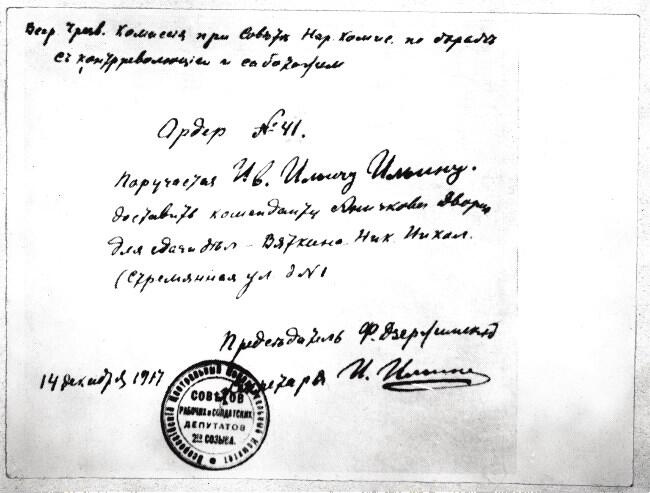 Всер. Чрезв. Комиссия при Совѣтѣ Нар. Комис. по борьбѣ
съ контрреволюціей и саботажем
Ордер № 41.
Поручается Ив. Ильичу Ильину.
доставить коменданта Аничкова Дворца
для сдачи дѣл - Вяткина Ник. Никол.
(Стремянная ул д №1
Председатель Ф. Дзержинскій
14 декабря 1917
Секретарь И. Ильин
Всероссійскій Центральный Исполнительный Комитет
СОВѢТОВ
РАБОЧИХ и СОЛДАТСКИХ
ДЕПУТАТОВ
2го СОЗЫВА.